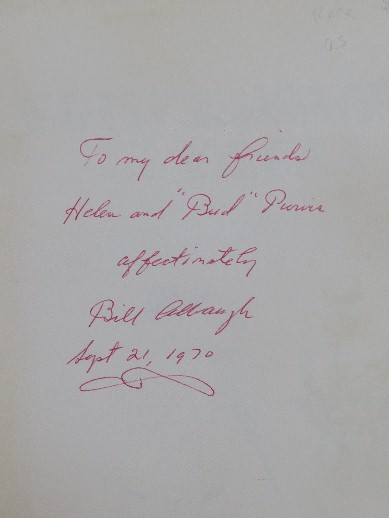 To my dear friends
Helen and "Bud" Purvis
affectinately
Bill Albaugh
Sept 21, 1970